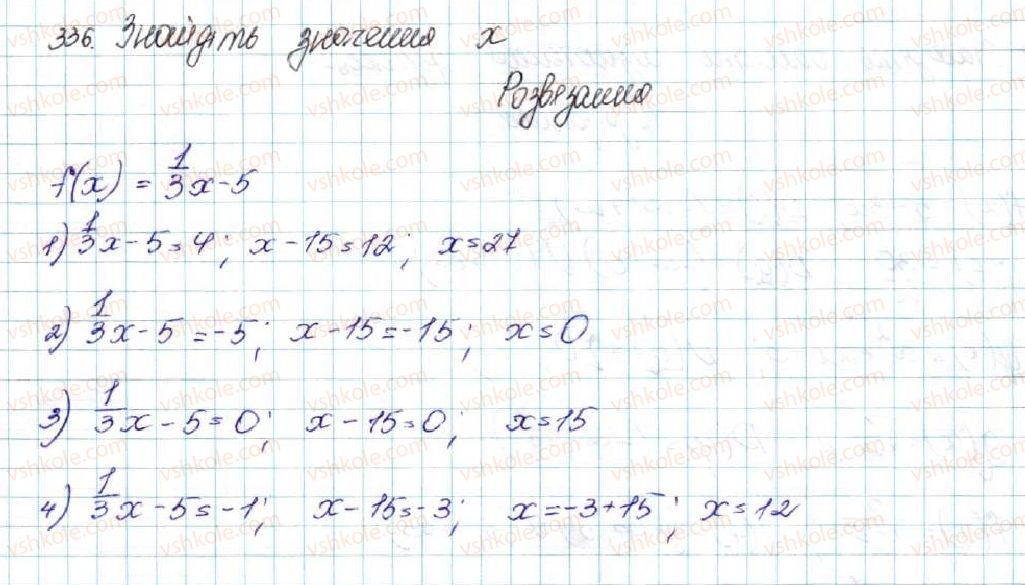 336. Знайдіть значення x
Розвязання
f(x) = 1/3x - 5
1) 1/3x - 5 = 4; x - 15 = 12; x = 27
2) 1/3x - 5 = -5; x - 15 = -15; x = 0
3) 1/3x - 5 = 0; x - 15 = 0; x = 15
4) 1/3x - 5 = -1; x - 15 = -3; x = -3 + 15; x = 12